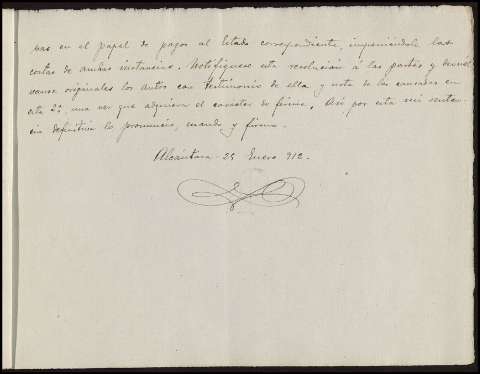 tas en el papel de pagos al Estado correspondiente, imponiéndole las
costas de ambas instancias. Notifíquese esta resolución á las partes y
vanse originales los autos con testimonio de ella y nota de las causadas en
esta 2ª, una vez que adquiera el caracter de firme. Así por esta mi senten-
cia definitiva lo pronuncio, mando y firmo.
Alcántara - 25 Enero 912.